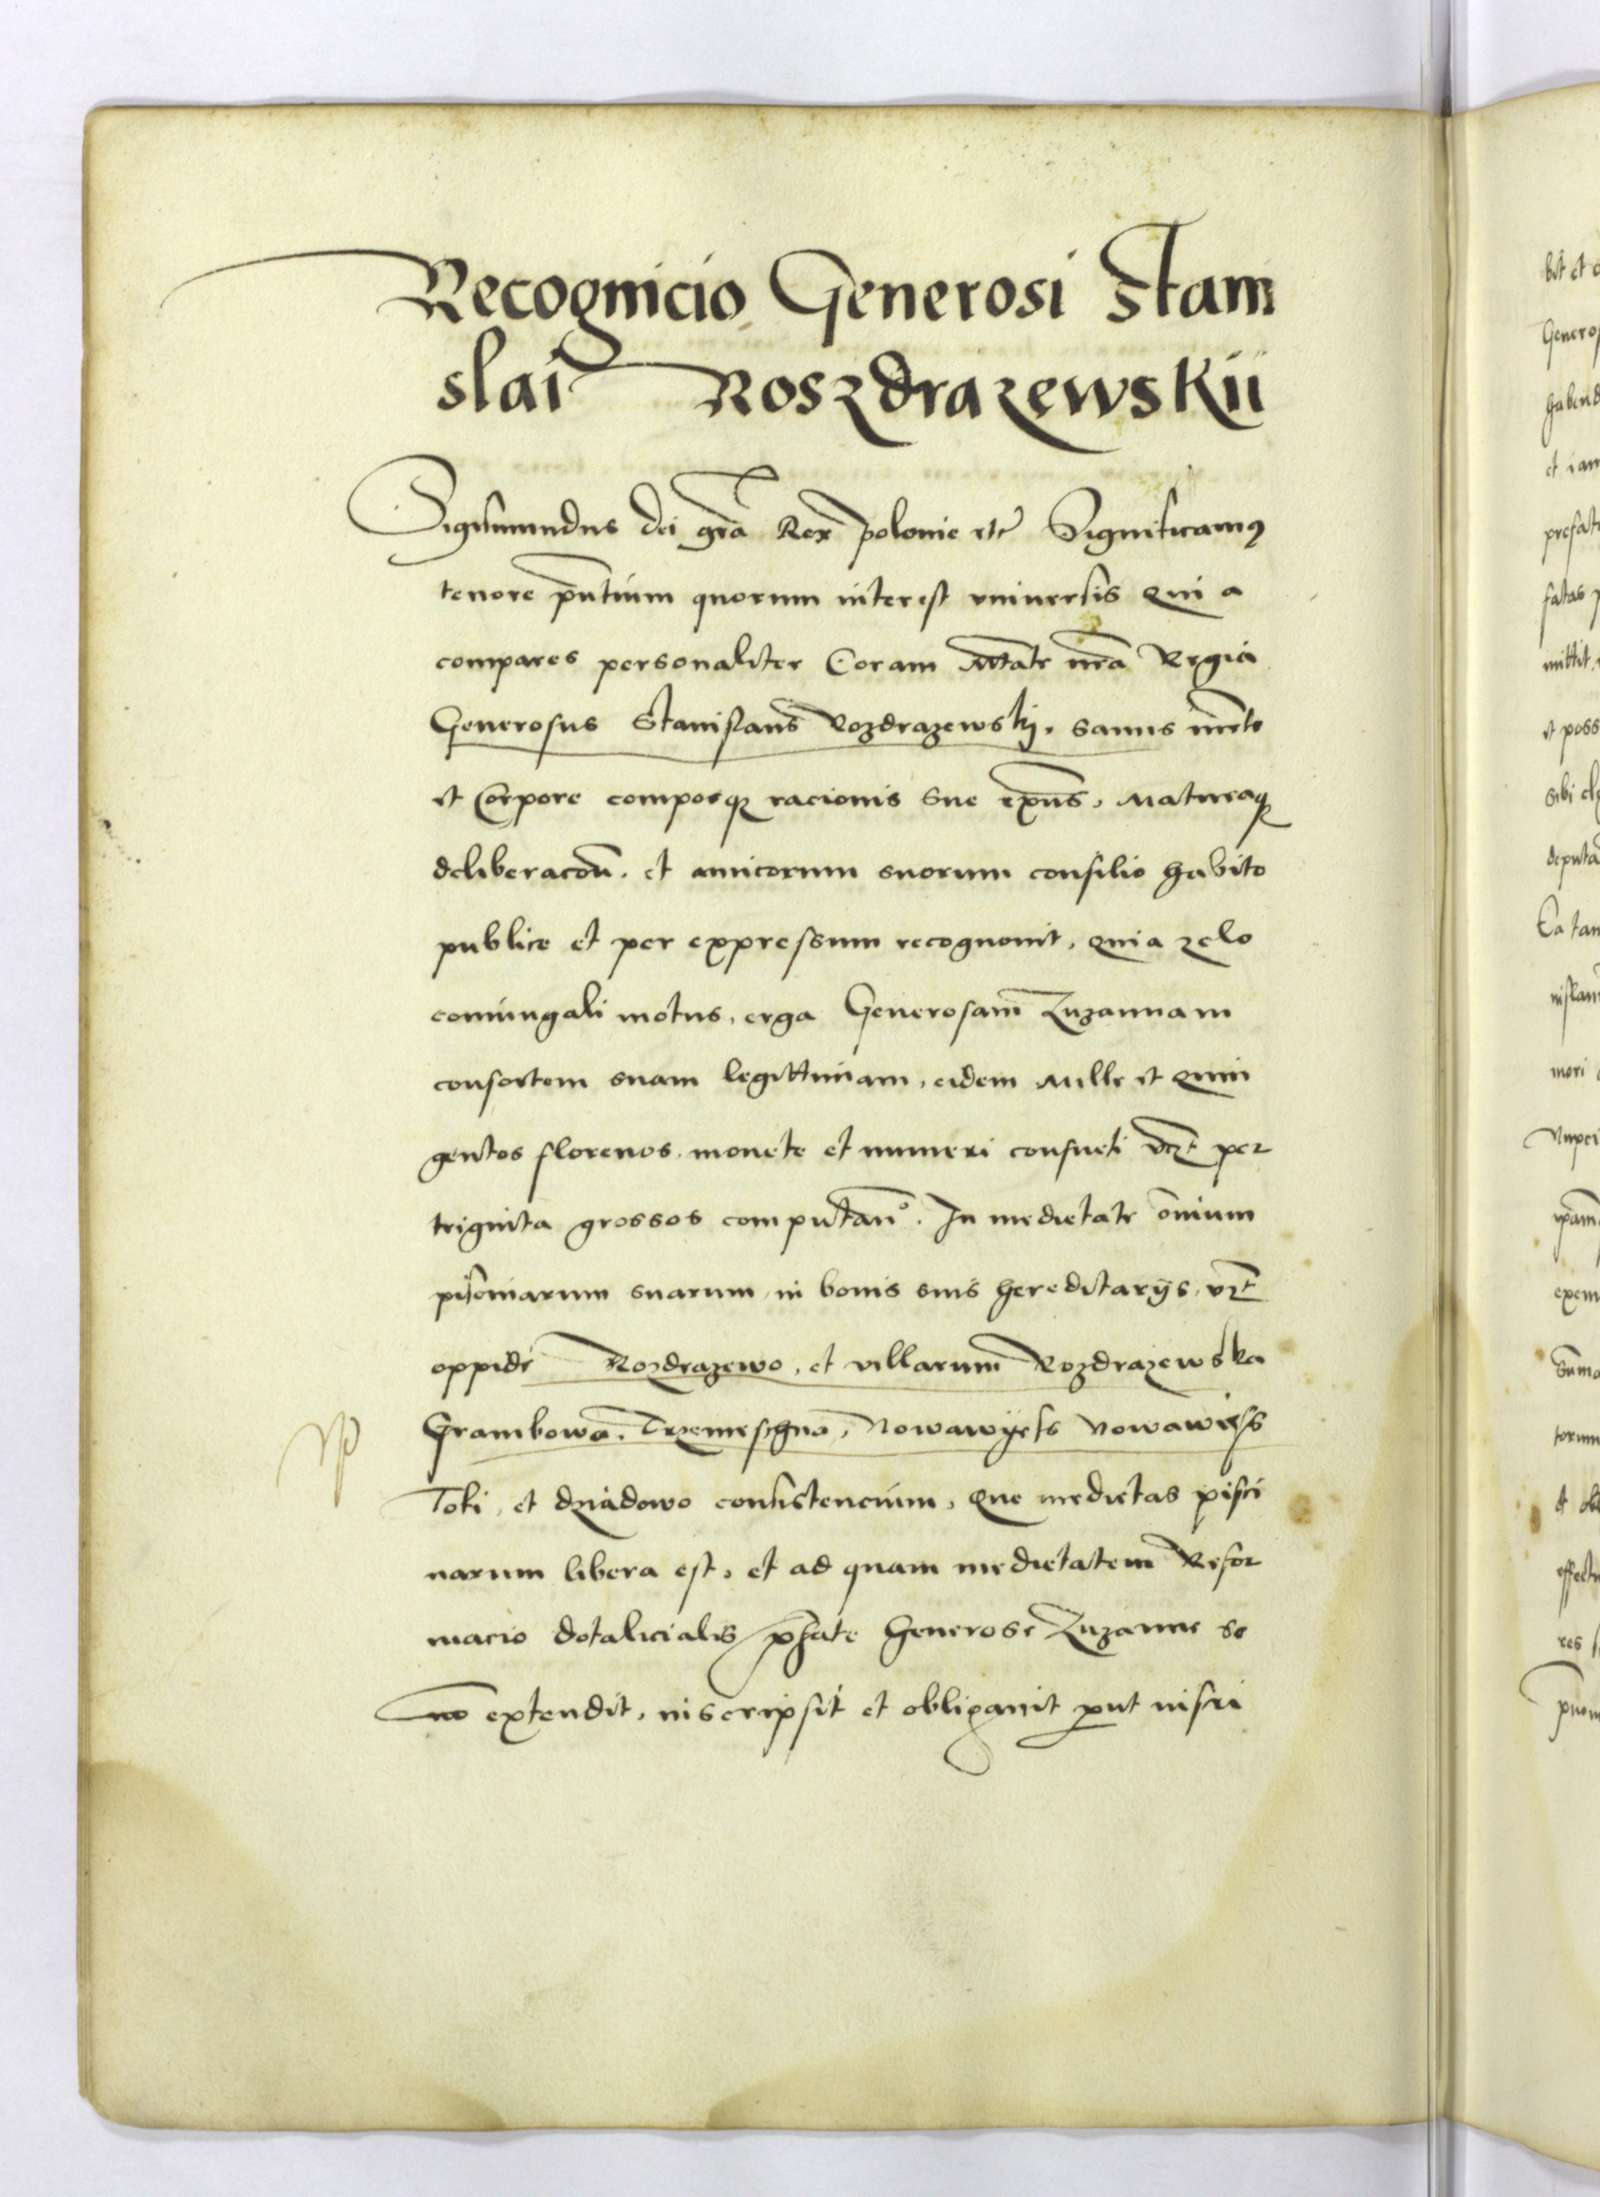 Recognicio Generosi Stani
slai Roszdrazewskii
Sigismundus dei gra Rex polonie etc Significamus
tenore pntium quorum interest universis Quia
compares personaliter Coram Mtate nra Regia
Generosus Stanislaus Rozdrazewskj, sanus mente
et Corpore composq racionis sue expns, Matureaq
deliberacoe, et amicorum suorum consilio habito
publice et per expressum recognovit, quia zelo
coniungali motus, erga Generosam Zuzannam
consortem suam legittimam, eidem Mille et Quin
gentos florenos monete et numeri consueti vczt per
triginta grossos computan. In medietate omnium
piscinarum suarum in bonis suis hereditarijs, vczt
oppidi Rozdrazewo, et villarum Rozdrazewska
Grambowa, Trzemeschna, Nowawyess Nowawiess
Toti, et dziadowo consistencium, Que medietas pisci
narum libera est, et ad quam medietatem Refor
macio dotalicialis pfate Generose Zuzanne se
no extendit, inscripsit et obligavit put inscri
bit et
Genero
habend
et iam
prefat
fatas
mittit
et poss
sibi
deputa
Ea tam
nislau
mori
Nupci
ipam
exem
Suma
torum
et
effect
res